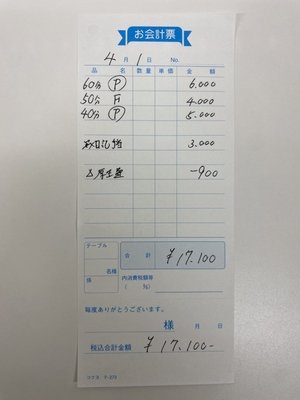 お会計票
4月1日 No.
品名 数量 単価 金額
60分 Ⓟ 6.000
50分 F 4.000
40分 Ⓟ 5.000
3.000
厚生 -900
テーブル
名様
係
合計 ¥17.100
内消費税額等
( %)
毎度ありがとうございます。
様 月 日
税込合計金額 ¥17.100-
コクヨ テ-270